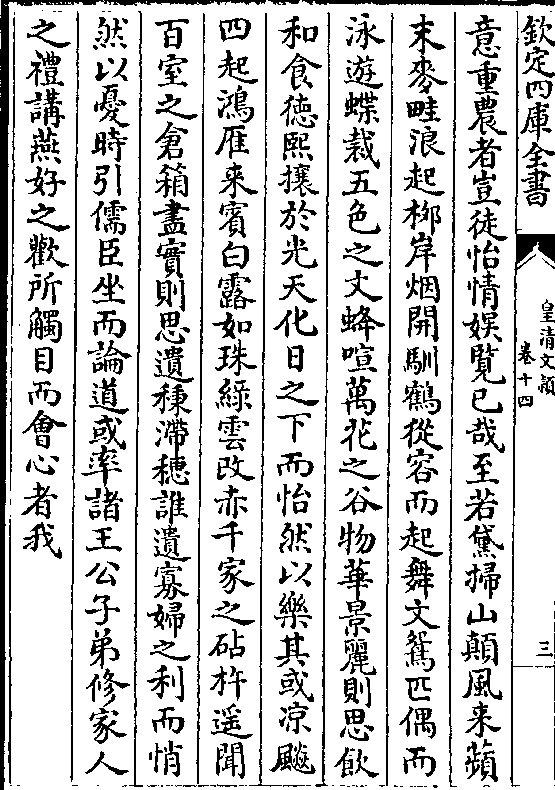 欽定四庫全書
皇清文頴
卷十四
三
意重農者豈徒怡情娱覽已哉至若黛掃山顛風来蘋
末麥畦浪起柳岸烟開馴鶴從容而起舞文鴛匹偶而
泳遊蝶裁五色之文蜂喧萬花之谷物華景麗則思飲
和食徳熙攘於光天化日之下而怡然以樂其或凉飈
四起鴻雁来賓白露如珠綠雲改赤千家之砧杵遥聞
百室之倉箱盡實則思遺秉滯穂誰遺寡婦之利而悄
然以憂時引儒臣坐而論道或率諸王公子弟修家人
之禮講燕好之歡所觸目而會心者我